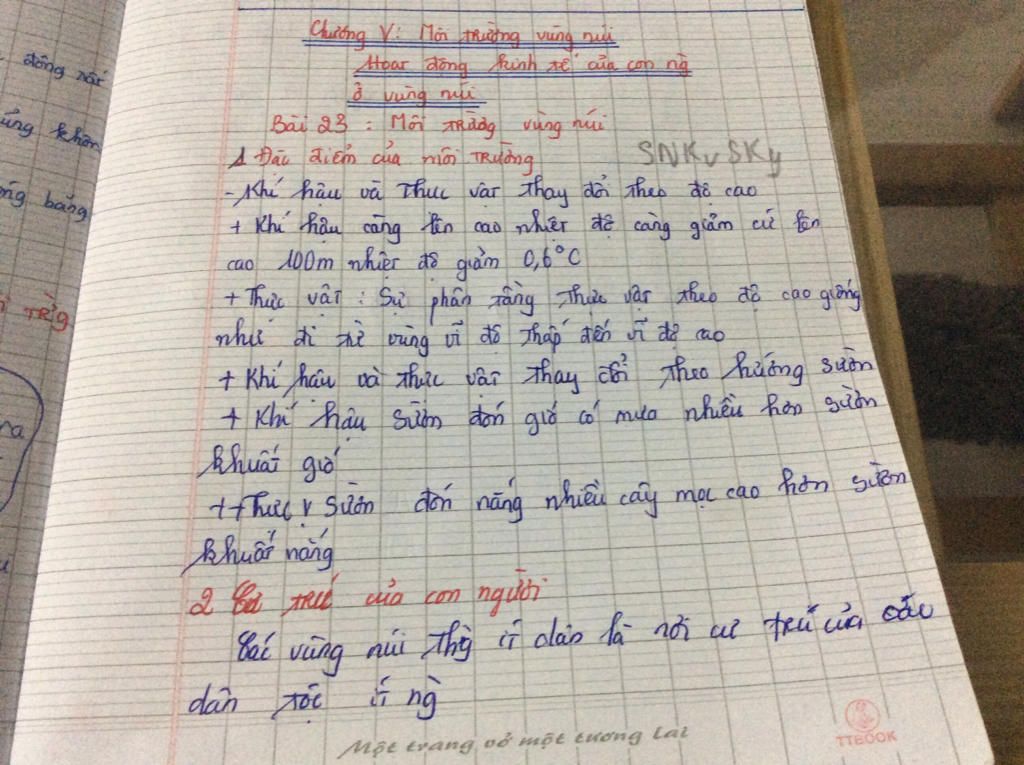 Chương V: Môi trường vùng núi
Hoạt động kinh tế của con ng
ở vùng núi
Bài 23: Môi trường vùng núi
1 Đặc điểm của môi trường
SNKvSKy
- Khí hậu và thực vật thay đổi theo độ cao
+ Khí hậu càng lên cao nhiệt độ càng giảm cứ lên
cao 100m nhiệt độ giảm 0,6°C
+ Thực vật: Sự phân tầng thực vật theo độ cao giống
như đi từ vùng vĩ độ thấp đến vĩ độ cao
+ Khí hậu và thực vật thay đổi theo hướng sườn
+ Khí hậu sườn đón gió có mưa nhiều hơn sườn
khuất gió
++ Thực v sườn đón nắng nhiều cây mọc cao hơn sườn
khuất nắng
2 Cư trú của con người
Các vùng núi thg ít dân là nơi cư trú của các
dân tộc ít ng
Một trang vở một tương lai
TTBOOK
đông
ứng
bảng